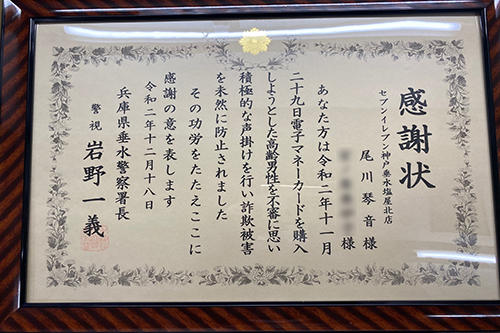 感謝状
セブンイレブン神戸垂水塩屋北店
尾川琴音様
様
あなた方は令和二年十一月
二十九日電子マネーカードを購入
しようとした高齢男性を不審に思い
積極的な声掛けを行い詐欺被害
を未然に防止されました
その功労をたたえここに
感謝の意を表します
令和二年十二月十八日
兵庫県垂水警察署長
警視 岩野一義